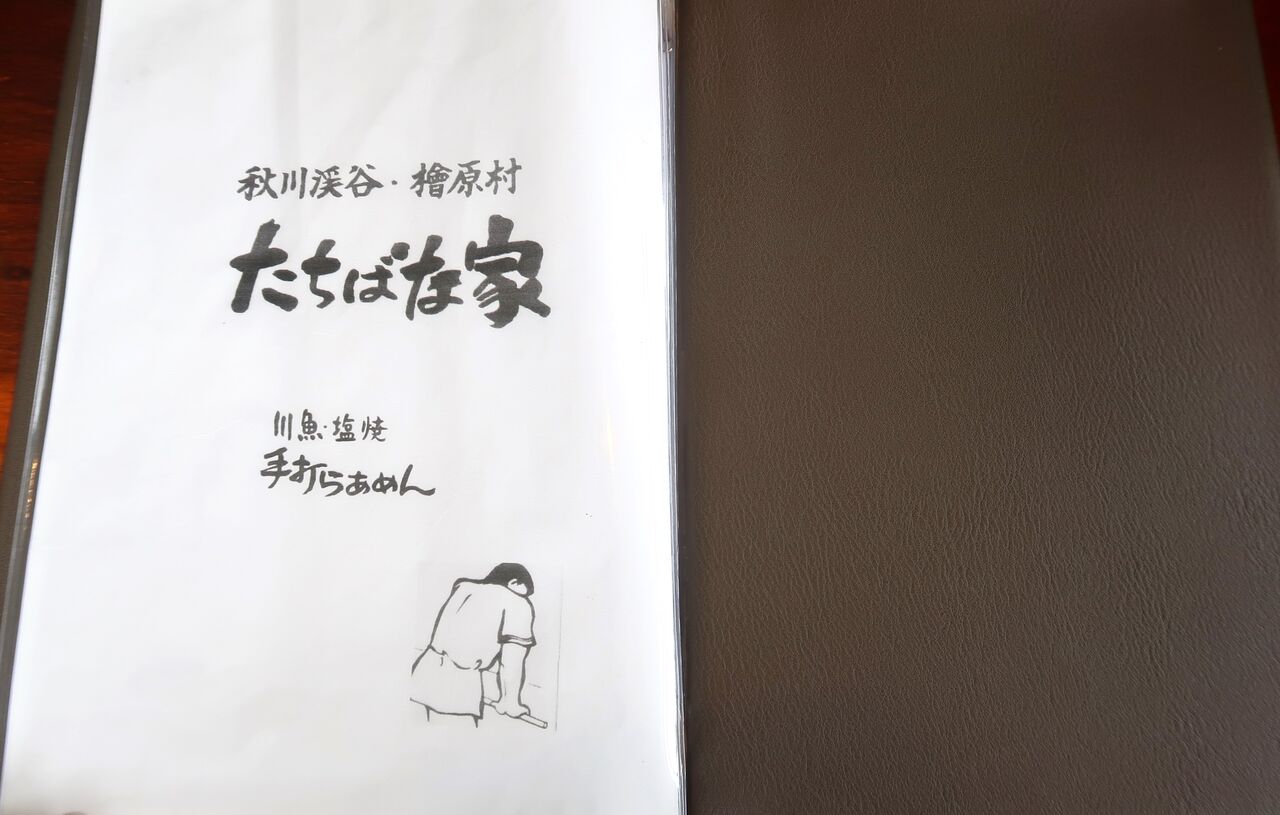 秋川渓谷・檜原村
たちばな家
川魚・塩焼
手打らあめん